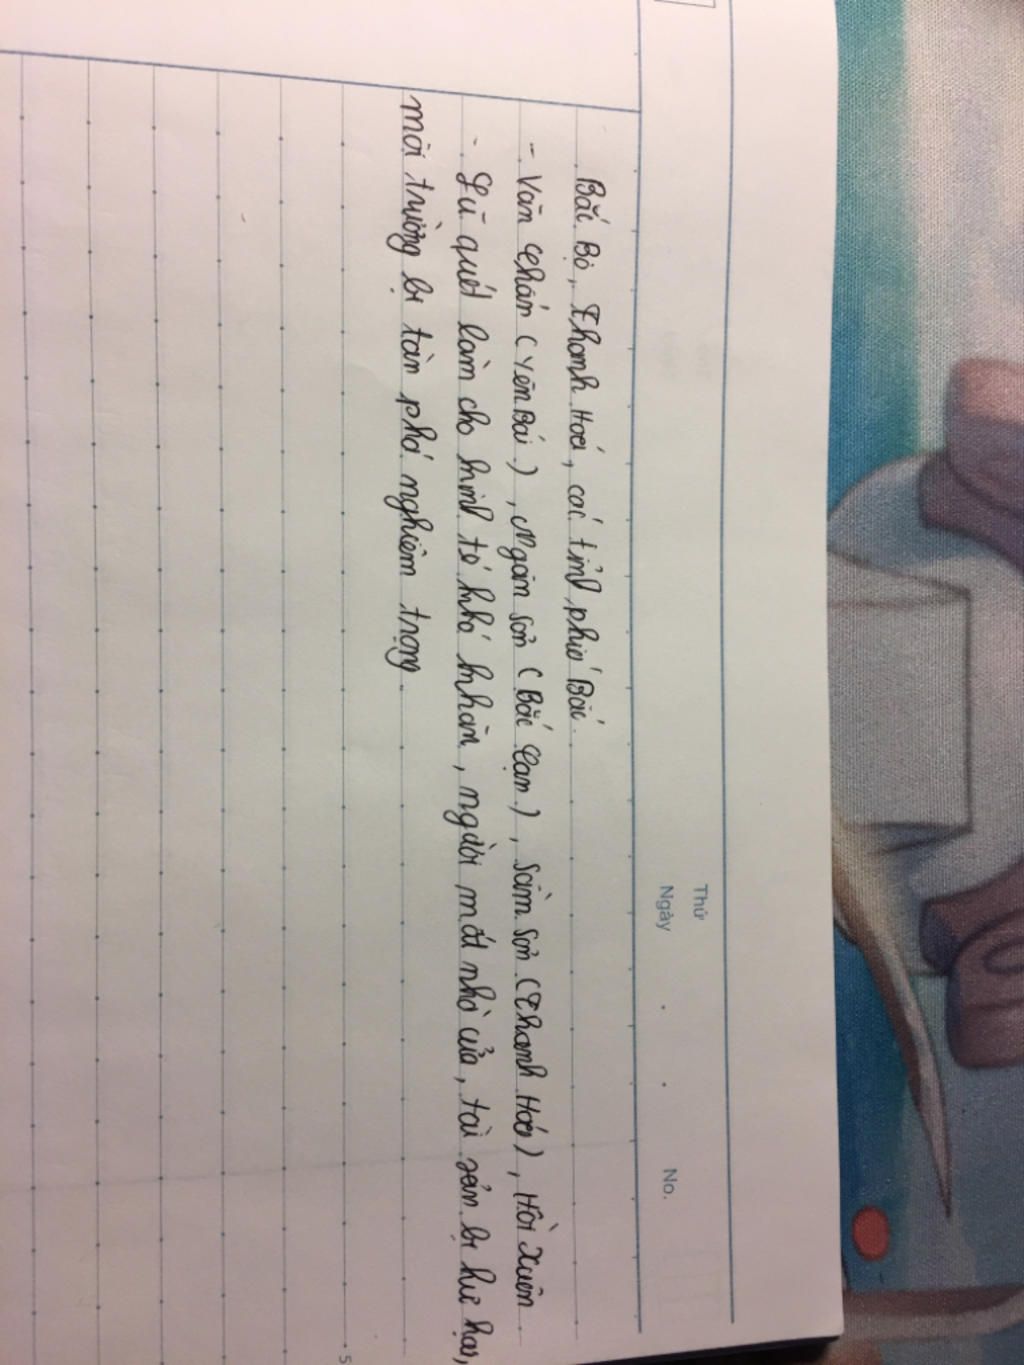 Thứ
Ngày . . No.
Bắc Bộ, Thanh Hoá, các tỉnh phía Bắc.
- Văn Chấn (Yên Bái), Ngân Sơn (Bắc Cạn), Sầm Sơn (Thanh Hoá), Hồi Xuân
- Lũ quét làm cho kinh tế khó khăn, người mất nhà cửa, tài sản bị hư hại,
môi trường bị tàn phá nghiêm trọng.
5